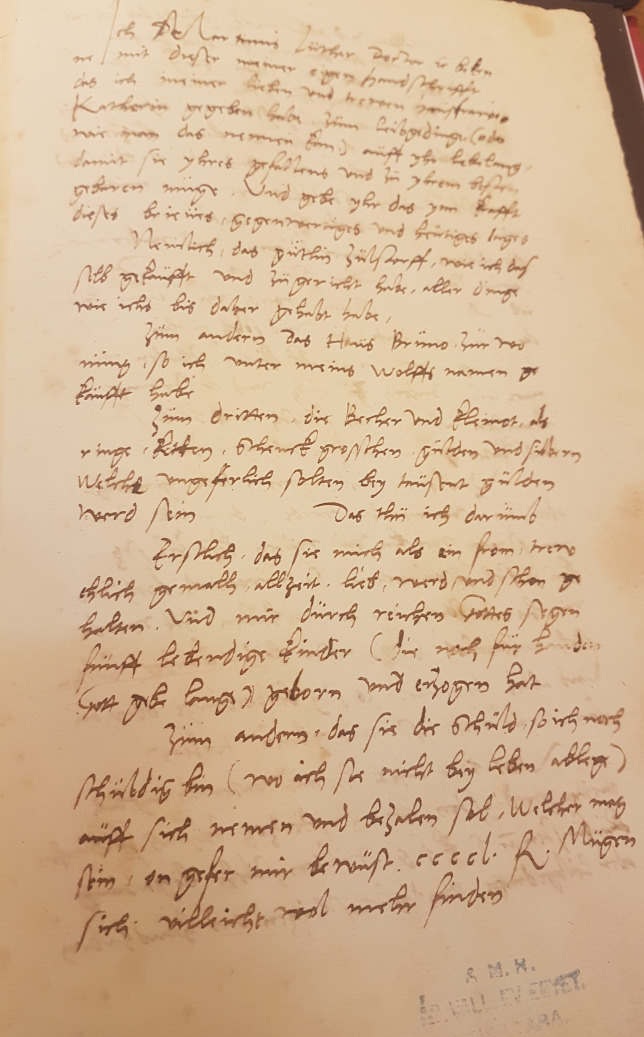 Ich M Martinus Luther Doctor ꝛc beken
ne mit dieser meiner eigen handschrifft
das ich meiner lieben und trewen hausfrawen
Katherin gegeben habe zum leibgeding (odder
wie man das nennen kan) auff yhr lebelang
damit sie yhres gefallens und zu yhrem besten
gebaren müge, Und gebe yhr das ynn krafft
dieses brieues, gegenwertiges und heutiges tages
Nemlich, das gütlin Zulstorff, wie ich das
selb gekaufft und zugericht habe, aller dinge
wie ichs bis daher gehabt habe,
Zum andern das Haus Bruno zur wo
nung, so ich unter meins Wolffs namen ge
kaufft habe
Zum dritten, die Becher und kleinot, als
ringe, keten, schenck grosschen, gülden und silbern
Welche ungeferlich solten bey tausent gülden
werd sein Das thu ich darumb
Erstlich, das sie mich als ein from, trew
ehlich gemalh, allzeit, lieb, werd, und schon ge
halten, Und mir durch reichen Gottes segen
funff lebendige kinder (die noch fur handen
Gott gebe lange) geborn und erzogen hat
Zum andern, das sie die schuld, so ich noch
schuldig bin (wo ich sie nicht bey leben ablege)
auff sich nemen und bezalen sol, Welcher mag
sein, on gefer mir bewust, ccccl. fl. Mügen
sich villeicht wol mehr finden